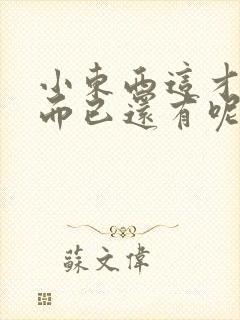 小東西這才
而已還有呢
蘇文偉